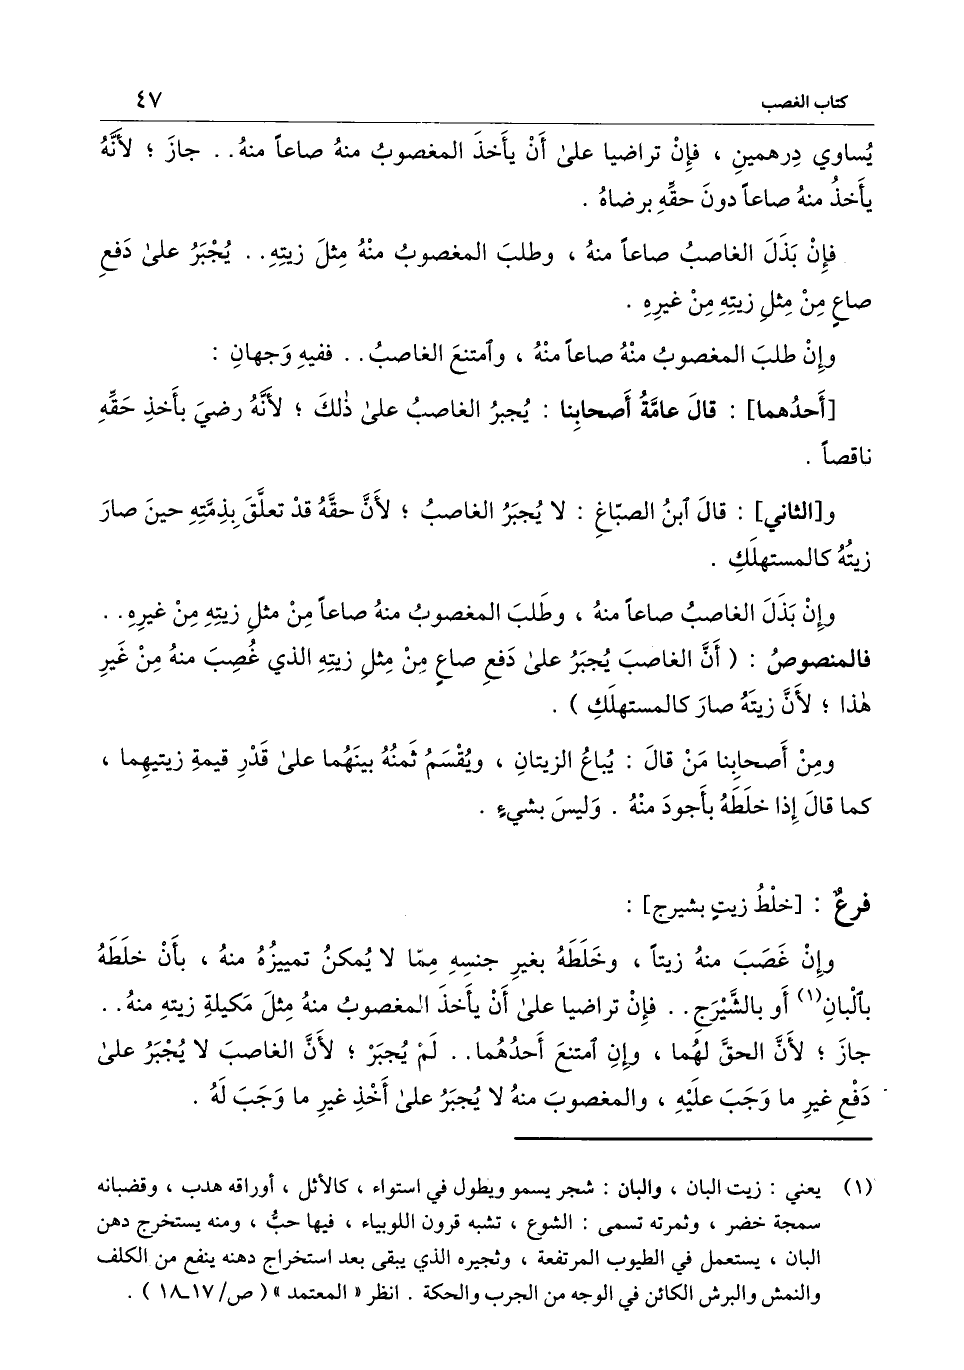 كتاب الغصب ٤٧
يُساوي دِرهمينِ ، فإِنْ تراضيا علىٰ أَنْ يأَخذَ المغصوبُ منهُ صاعاً منهُ . . جازَ ؛ لأَنَّهُ
يأَخذُ منهُ صاعاً دونَ حقِّهِ برضاهُ .
فإِنْ بَذَلَ الغاصبُ صاعاً منهُ ، وطلبَ المغصوبُ منْهُ مِثلَ زيتِهِ . . يُجْبَرُ علىٰ دَفعِ
صاعٍ مِنْ مِثلِ زيتِهِ مِنْ غيرِهِ .
وإِنْ طلبَ المغصوبُ منْهُ صاعاً منْهُ ، وٱمتنعَ الغاصبُ . . ففيهِ وَجهانِ :
[أَحدُهما] : قالَ عامَّةُ أَصحابِنا : يُجبرُ الغاصبُ علىٰ ذٰلكَ ؛ لأَنَّهُ رضيَ بأَخذِ حَقِّهِ
ناقصاً .
و[الثاني] : قالَ ٱبنُ الصبّاغِ : لا يُجبَرُ الغاصبُ ؛ لأَنَّ حقَّهُ قدْ تعلَّقَ بِذِمَّتِهِ حينَ صارَ
زيتُهُ كالمستهلَكِ .
وإِنْ بَذَلَ الغاصبُ صاعاً منهُ ، وطَلبَ المغصوبُ منهُ صاعاً مِنْ مثلِ زيتِهِ مِنْ غيرِهِ . .
فالمنصوصُ : ( أَنَّ الغاصبَ يُجبَرُ علىٰ دَفعِ صاعٍ مِنْ مِثلِ زيتِهِ الذي غُصِبَ منهُ مِنْ غَيرِ
هٰذا ؛ لأَنَّ زيتَهُ صارَ كالمستهلَكِ ) .
ومِنْ أَصحابِنا مَنْ قالَ : يُباعُ الزيتانِ ، ويُقْسَمُ ثَمنُهُ بينَهُما علىٰ قَدْرِ قيمةِ زيتيهِما ،
كما قالَ إِذا خلَطَهُ بأَجودَ منْهُ . وَليسَ بشيءٍ .
فرعٌ : [خلْطُ زيتٍ بشيرج] :
وإِنْ غَصَبَ منهُ زيتاً ، وخَلَطَهُ بغيرِ جنسِهِ مِمّا لا يُمكنُ تمييزُهُ منهُ ، بأَنْ خلَطَهُ
بٱلْبانِ(١) أَو بالشَّيْرَجِ . . فإِنْ تراضيا علىٰ أَنْ يأَخذَ المغصوبُ منهُ مثلَ مَكيلةِ زيتِهِ منهُ . .
جازَ ؛ لأَنَّ الحقَّ لهُما ، وإِنِ ٱمتنعَ أَحدُهُما . . لَمْ يُجبَرْ ؛ لأَنَّ الغاصبَ لا يُجْبَرُ علىٰ
دَفْعِ غيرِ ما وَجَبَ علَيْهِ ، والمغصوبَ منهُ لا يُجبَرُ علىٰ أَخْذِ غيرِ ما وَجَبَ لَهُ .
(١) يعني : زيت البان ، والبان : شجر يسمو ويطول في استواء ، كالأثل ، أوراقه هدب ، وقضبانه
سمجة خضر ، وثمرته تسمى : الشوع ، تشبه قرون اللوبياء ، فيها حبٌّ ، ومنه يستخرج دهن
البان ، يستعمل في الطيوب المرتفعة ، وثجيره الذي يبقى بعد استخراج دهنه ينفع من الكلف
والنمش والبرش الكائن في الوجه من الجرب والحكة . انظر « المعتمد » ( ص/ ١٧ـ١٨ ) .